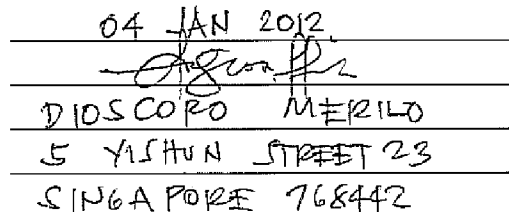 04 JAN 2012.
DIOSCORO MERILO
5 YISHUN STREET 23
SINGAPORE 768442